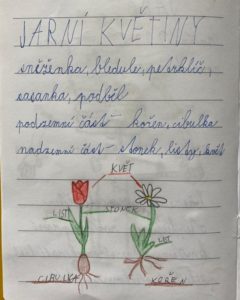 JARNÍ KVĚTINY
sněženka, bledule, petrklíč,
sasanka, podběl
podzemní část - kořen, cibulka
nadzemní část - stonek, listy, květ
KVĚT
LIST STONEK
LIST
CIBULKA KOŘEN